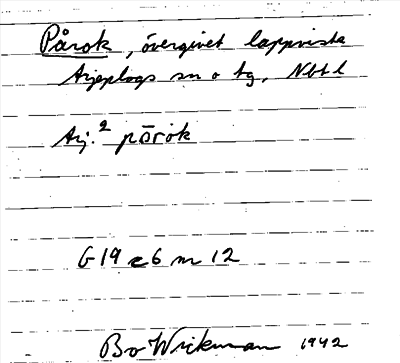 Pårok, övergivet lappviste
Arjeplogs sn o tg, Nbtl
Arj.² pōrok
G 19 c6 m 12
Bo Wickman 1942